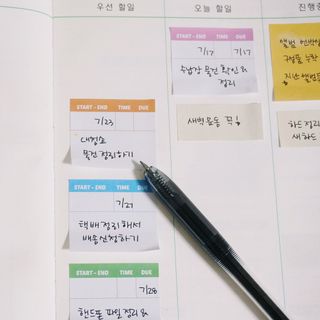 우선 할일
오늘 할일
진행중
START - END TIME DUE
7/17 7/17
수납장 물건 확인 &
정리
새벽운동 꼭!
앨범 언박싱
구성품 누락
지난 앨범들
하드 정리
새 하드
START - END TIME DUE
7/23
대청소
물건 정리하기
START - END TIME DUE
7/21
택배 정리해서
배송신청하기
START - END TIME DUE
7/28
핸드폰 파일 정리 &